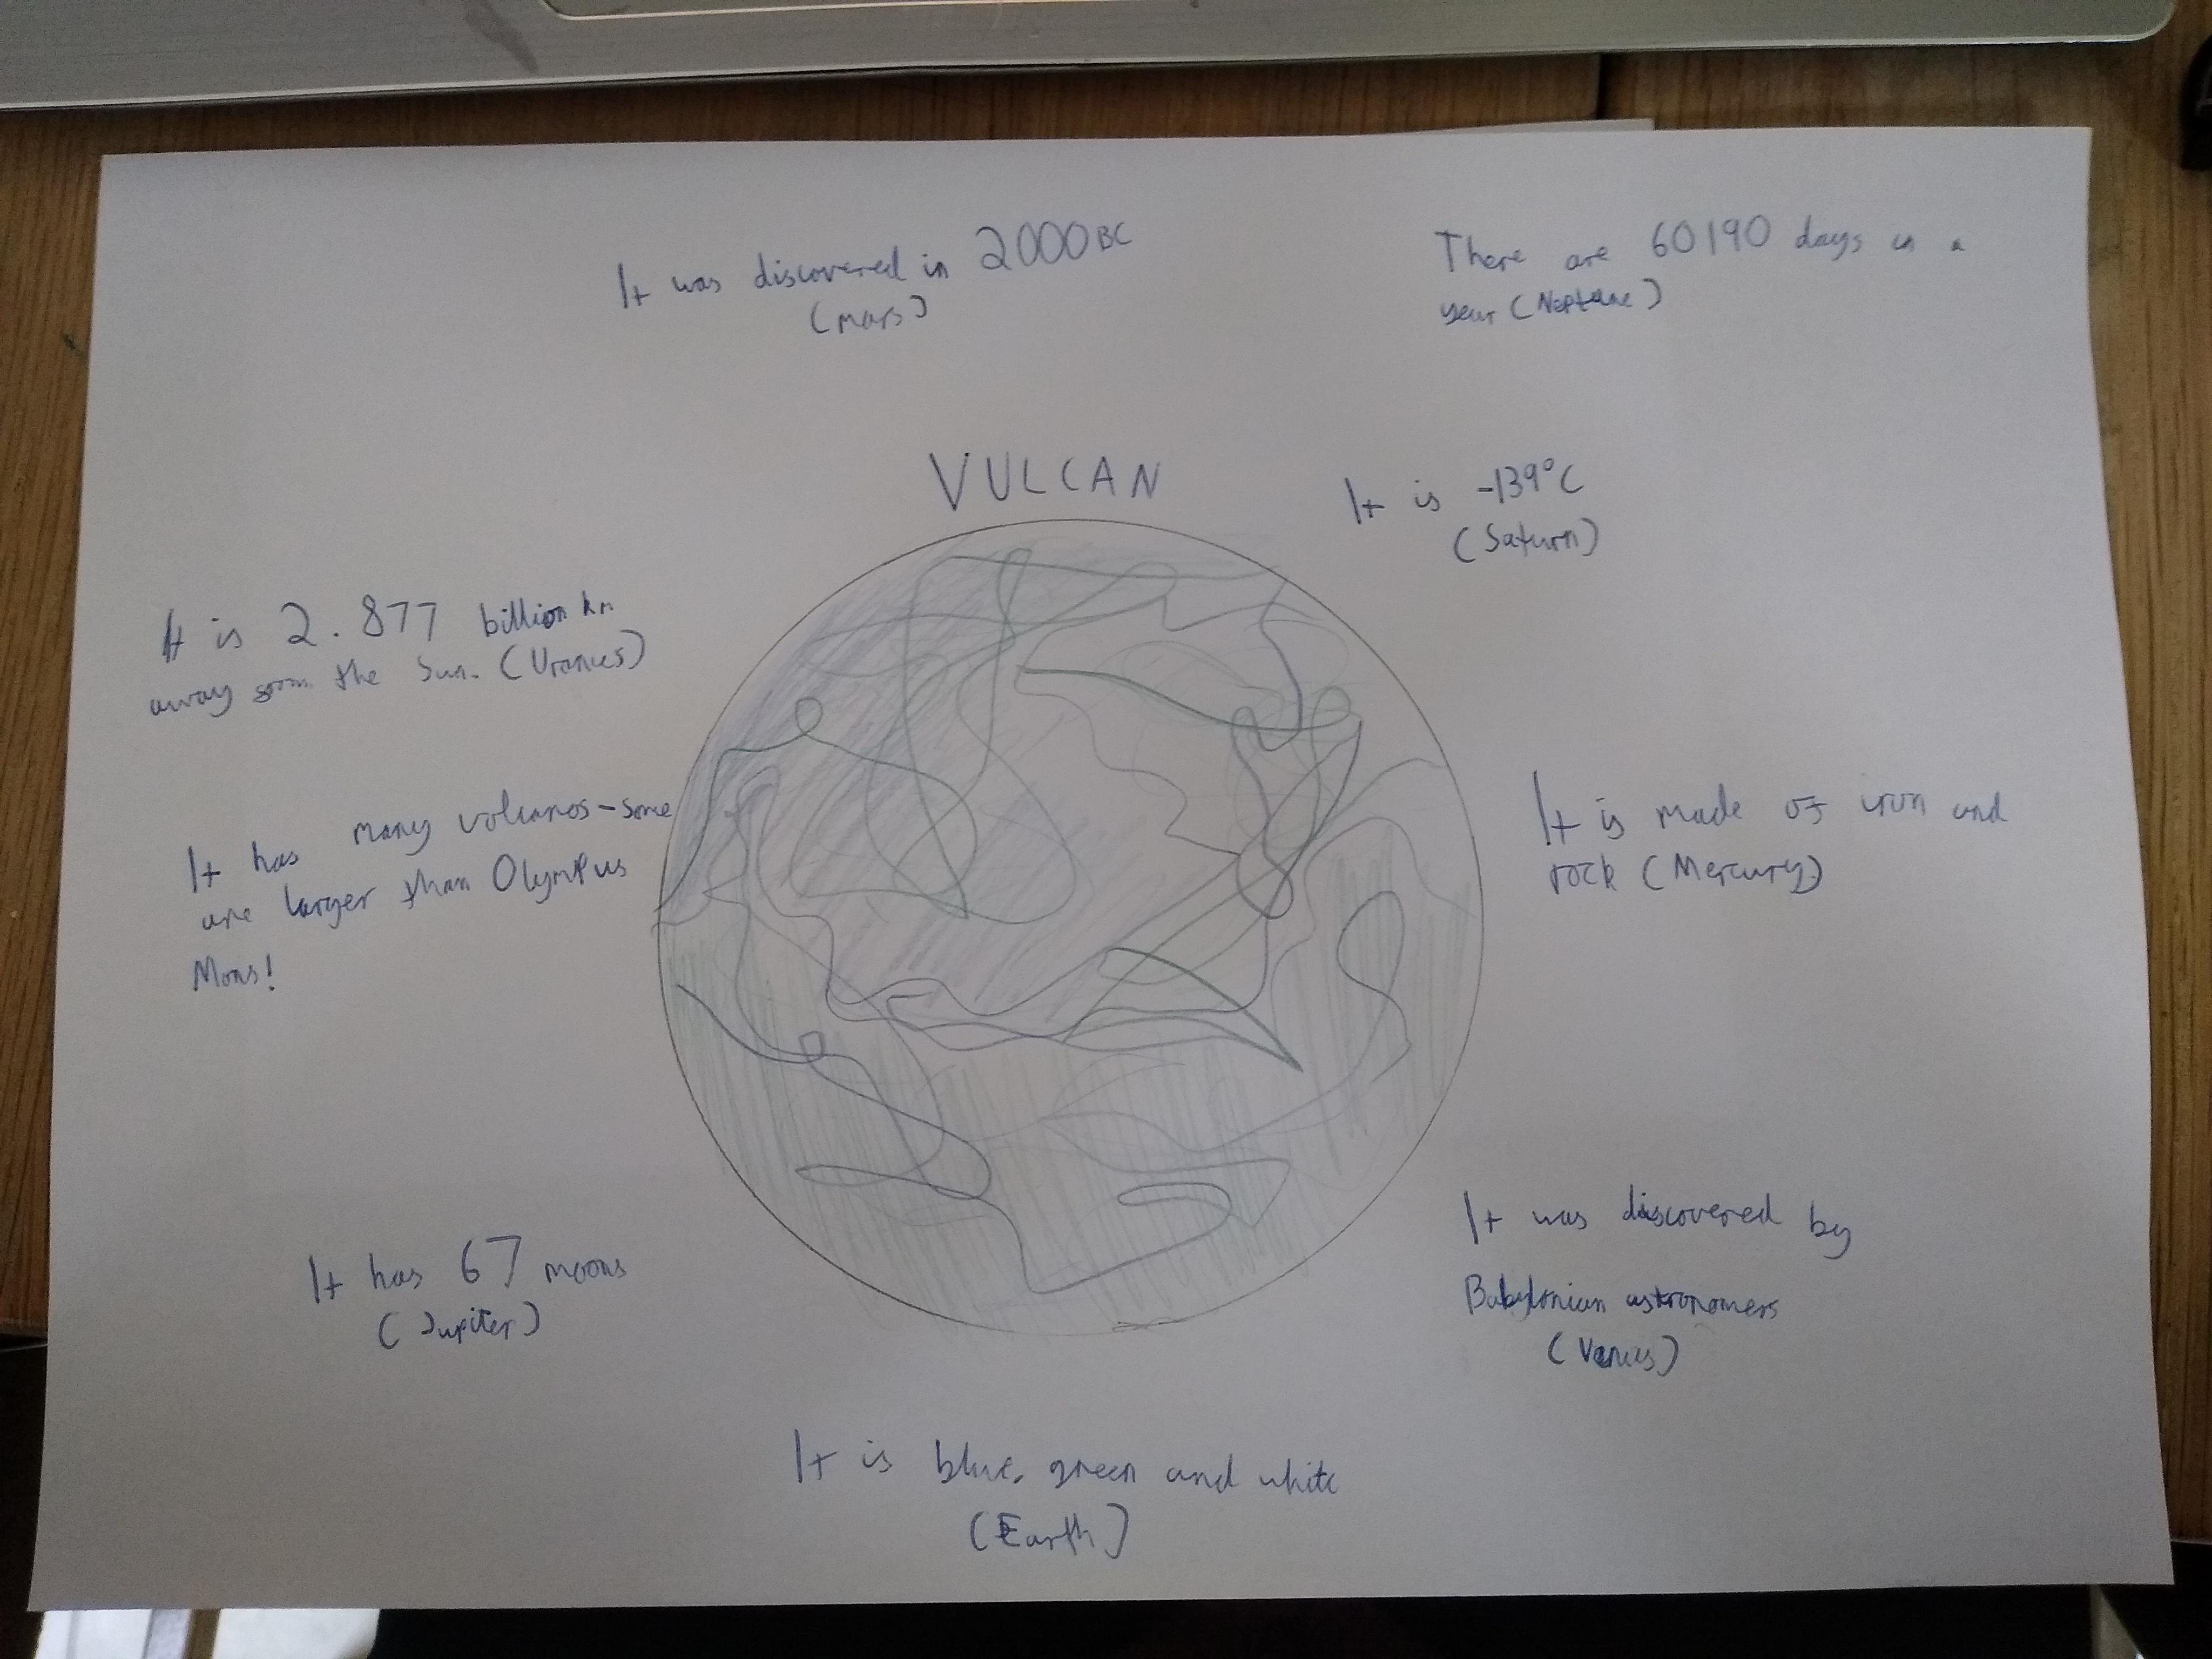 It was discovered in 2000 BC
(Mars)
There are 60190 days in a
year (Neptune)
VULCAN
It is -139°C
(Saturn)
It is 2.877 billion km
away from the Sun. (Uranus)
It has many volcanos - some
are larger than Olympus
Mons!
It is made of iron and
rock (Mercury)
It has 67 moons
(Jupiter)
It was discovered by
Babylonian astronomers
(Venus)
It is blue, green and white
(Earth)